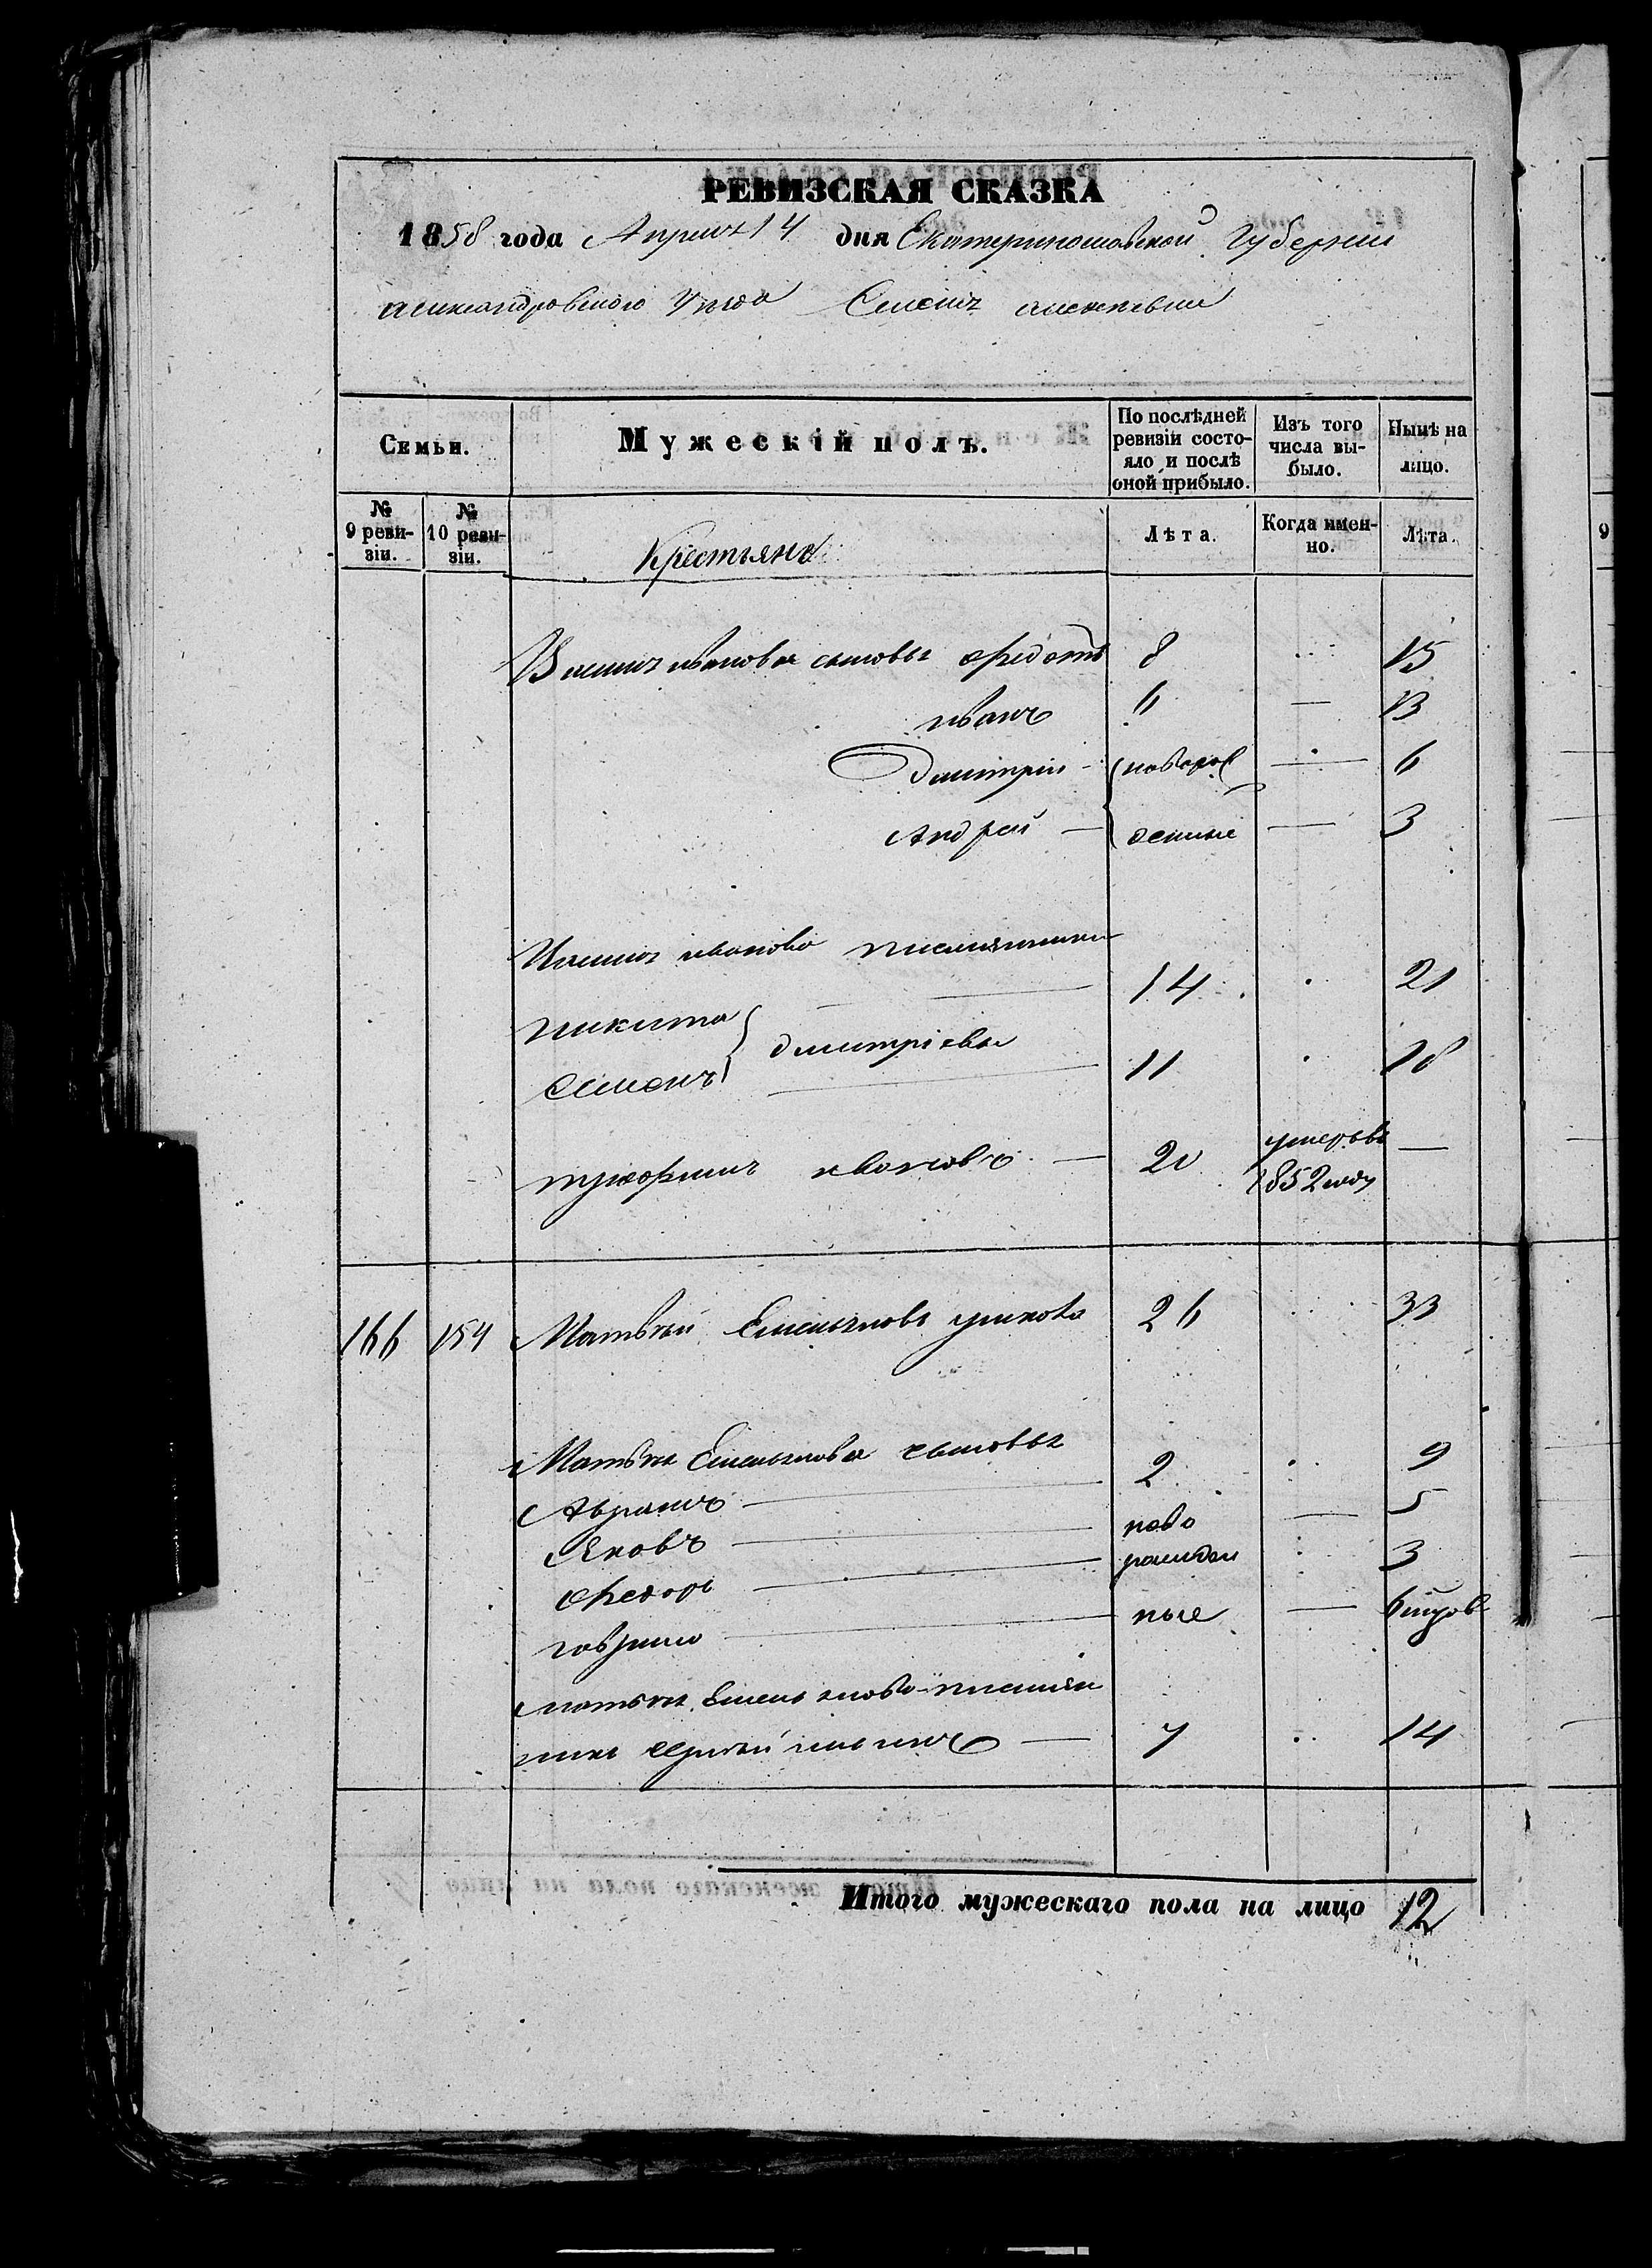 РЕВИЗСКАЯ СКАЗКА
1858 года Апреля 14 дня Екатеринославской Губернии
Александровского Уезда Селенія
Семьи.
Мужескій полъ.
По послѣдней ревизіи состо-
яло и послѣ оной прибыло.
Изъ того числа вы-
было.
Нынѣ на лицо.
№ 9 реви-
зіи.
№ 10 реви-
зіи.
Крестьяне
Лѣта.
Когда имен-
но.
Лѣта.
Иванова сыновья Федотъ 8 15
Иванъ 6 13
Дмитрій новорож 6
Андрей денные 3
Иванова племянники
Никита 14 21
Дмитріевы
Семенъ 11 18
Трофимъ Ивановъ 20 умеръ въ 1852 году
166 154 Матвѣй Емельяновъ 26 33
Матвѣя Емельянова сыновья
Аврамъ 2 9
Яковъ ново 5
Федоръ рожден 3
Гаврило ные 6
Матвѣя Емельянова племян
никъ Сергѣй 7 14
Итого мужескаго пола на лицо 12